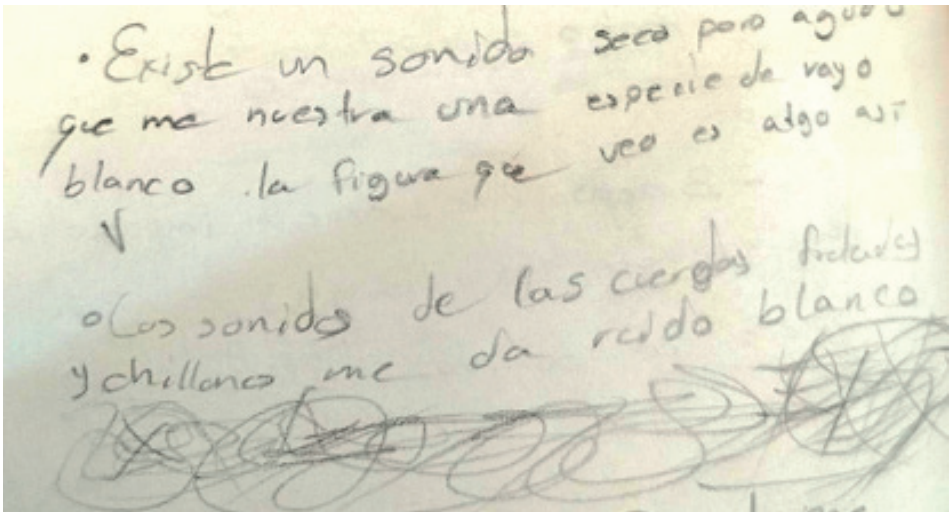 • Existe un sonido seco pero agudo
que me nuestra una especie de rayo
blanco .la figura que veo es algo así
• Los sonidos de las cuerdas
y chillones me da ruido blanco